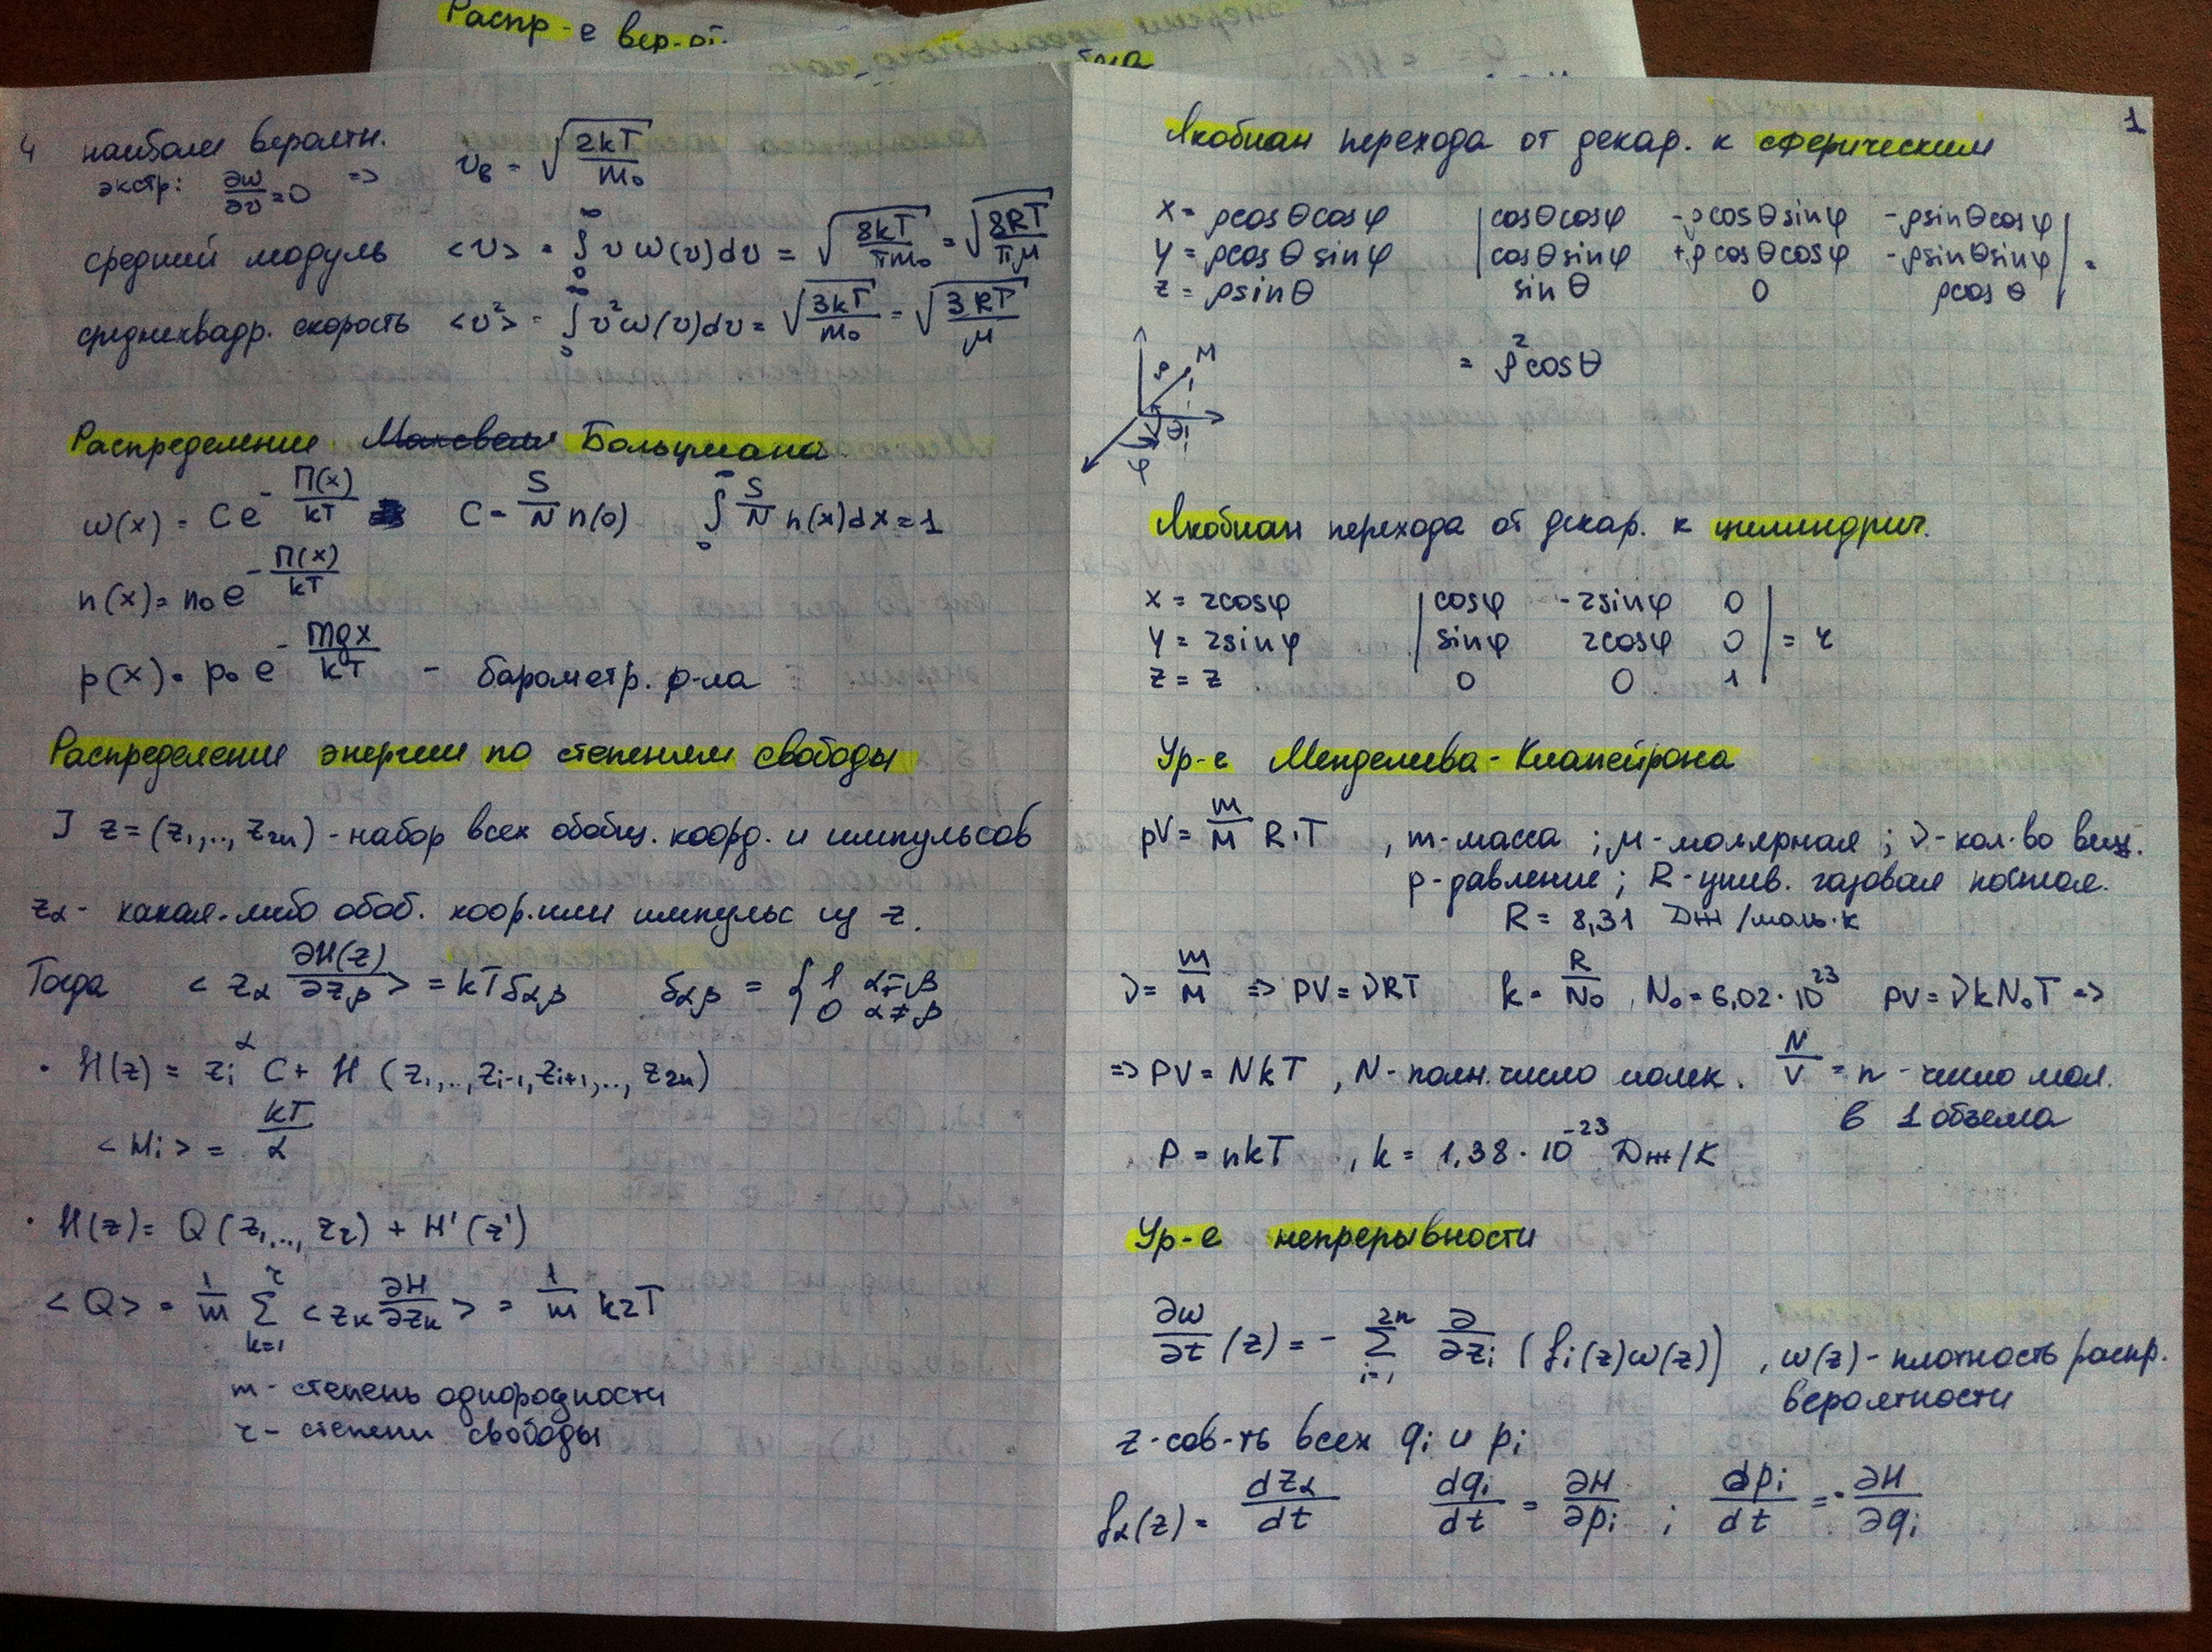 Распр-е вер-от.
4 наиболее вероятн.
экстр: ∂ω/∂υ = 0 => υв = √(2kT/m₀)
средний модуль <υ> = ∫₀^∞ υ ω(υ)dυ = √(8kT/πm₀) = √(8RT/πμ)
среднеквадр. скорость <υ²> = ∫₀^∞ υ²ω(υ)dυ = √(3kT/m₀) = √(3RT/μ)
Распределение Максвелл Больцмана
ω(x) = C e^(-П(x)/kT) C = S/N n(0) ∫₀^∞ S/N n(x)dx = 1
n(x) = n₀ e^(-П(x)/kT)
p(x) = p₀ e^(-mgx/kT) - барометр. ф-ла
Распределение энергии по степеням свободы
] z = (z₁,..,z₂ₙ) - набор всех обобщ. коорд. и импульсов
zα - какая-либо обоб. коор. или импульс из z.
Тогда <zα ∂H(z)/∂zβ> = kTδαβ δαβ = { 1 α=β
0 α≠β
• H(z) = zᵢ^α C + H (z₁,..,zᵢ₋₁,zᵢ₊₁,..,z₂ₙ)
<Hᵢ> = kT/α
• H(z) = Q(z₁,..,z_r) + H'(z')
<Q> = 1/m Σ_{k=1}^{r} <z_k ∂H/∂z_k> = 1/m krT
m - степень однородности
r - степени свободы
1
Якобиан перехода от декар. к сферическим
x = ρcosθcosφ | cosθcosφ -ρcosθsinφ -ρsinθcosφ |
y = ρcosθsinφ | cosθsinφ +ρcosθcosφ -ρsinθsinφ | =
z = ρsinθ sinθ 0 ρcosθ |
= ρ²cosθ
ρ M
θ
φ
Якобиан перехода от декар. к цилиндрич.
x = rcosφ | cosφ -rsinφ 0 |
y = rsinφ | sinφ rcosφ 0 | = r
z = z 0 0 1 |
Ур-е Менделеева-Клапейрона
pV = m/M R·T , m-масса ; μ-молярная ; ν-кол-во вещ.
p-давление ; R-унив. газовая постоя.
R = 8,31 Дж/моль·к
ν = m/M => PV = νRT k = R/N₀ , N₀ = 6,02·10²³ PV = νkN₀T =>
=> PV = NkT , N - полн. число молек. N/V = n - число мол.
в 1 объема
P = nkT , k = 1,38·10⁻²³ Дж/К
Ур-е непрерывности
∂ω/∂t (z) = - Σ_{i=1}^{2n} ∂/∂zᵢ (fᵢ(z)ω(z)) , ω(z) - плотность распр.
вероятности
z - сов-ть всех qᵢ и pᵢ
fα(z) = dzα/dt dqᵢ/dt = ∂H/∂pᵢ ; dpᵢ/dt = -∂H/∂qᵢ